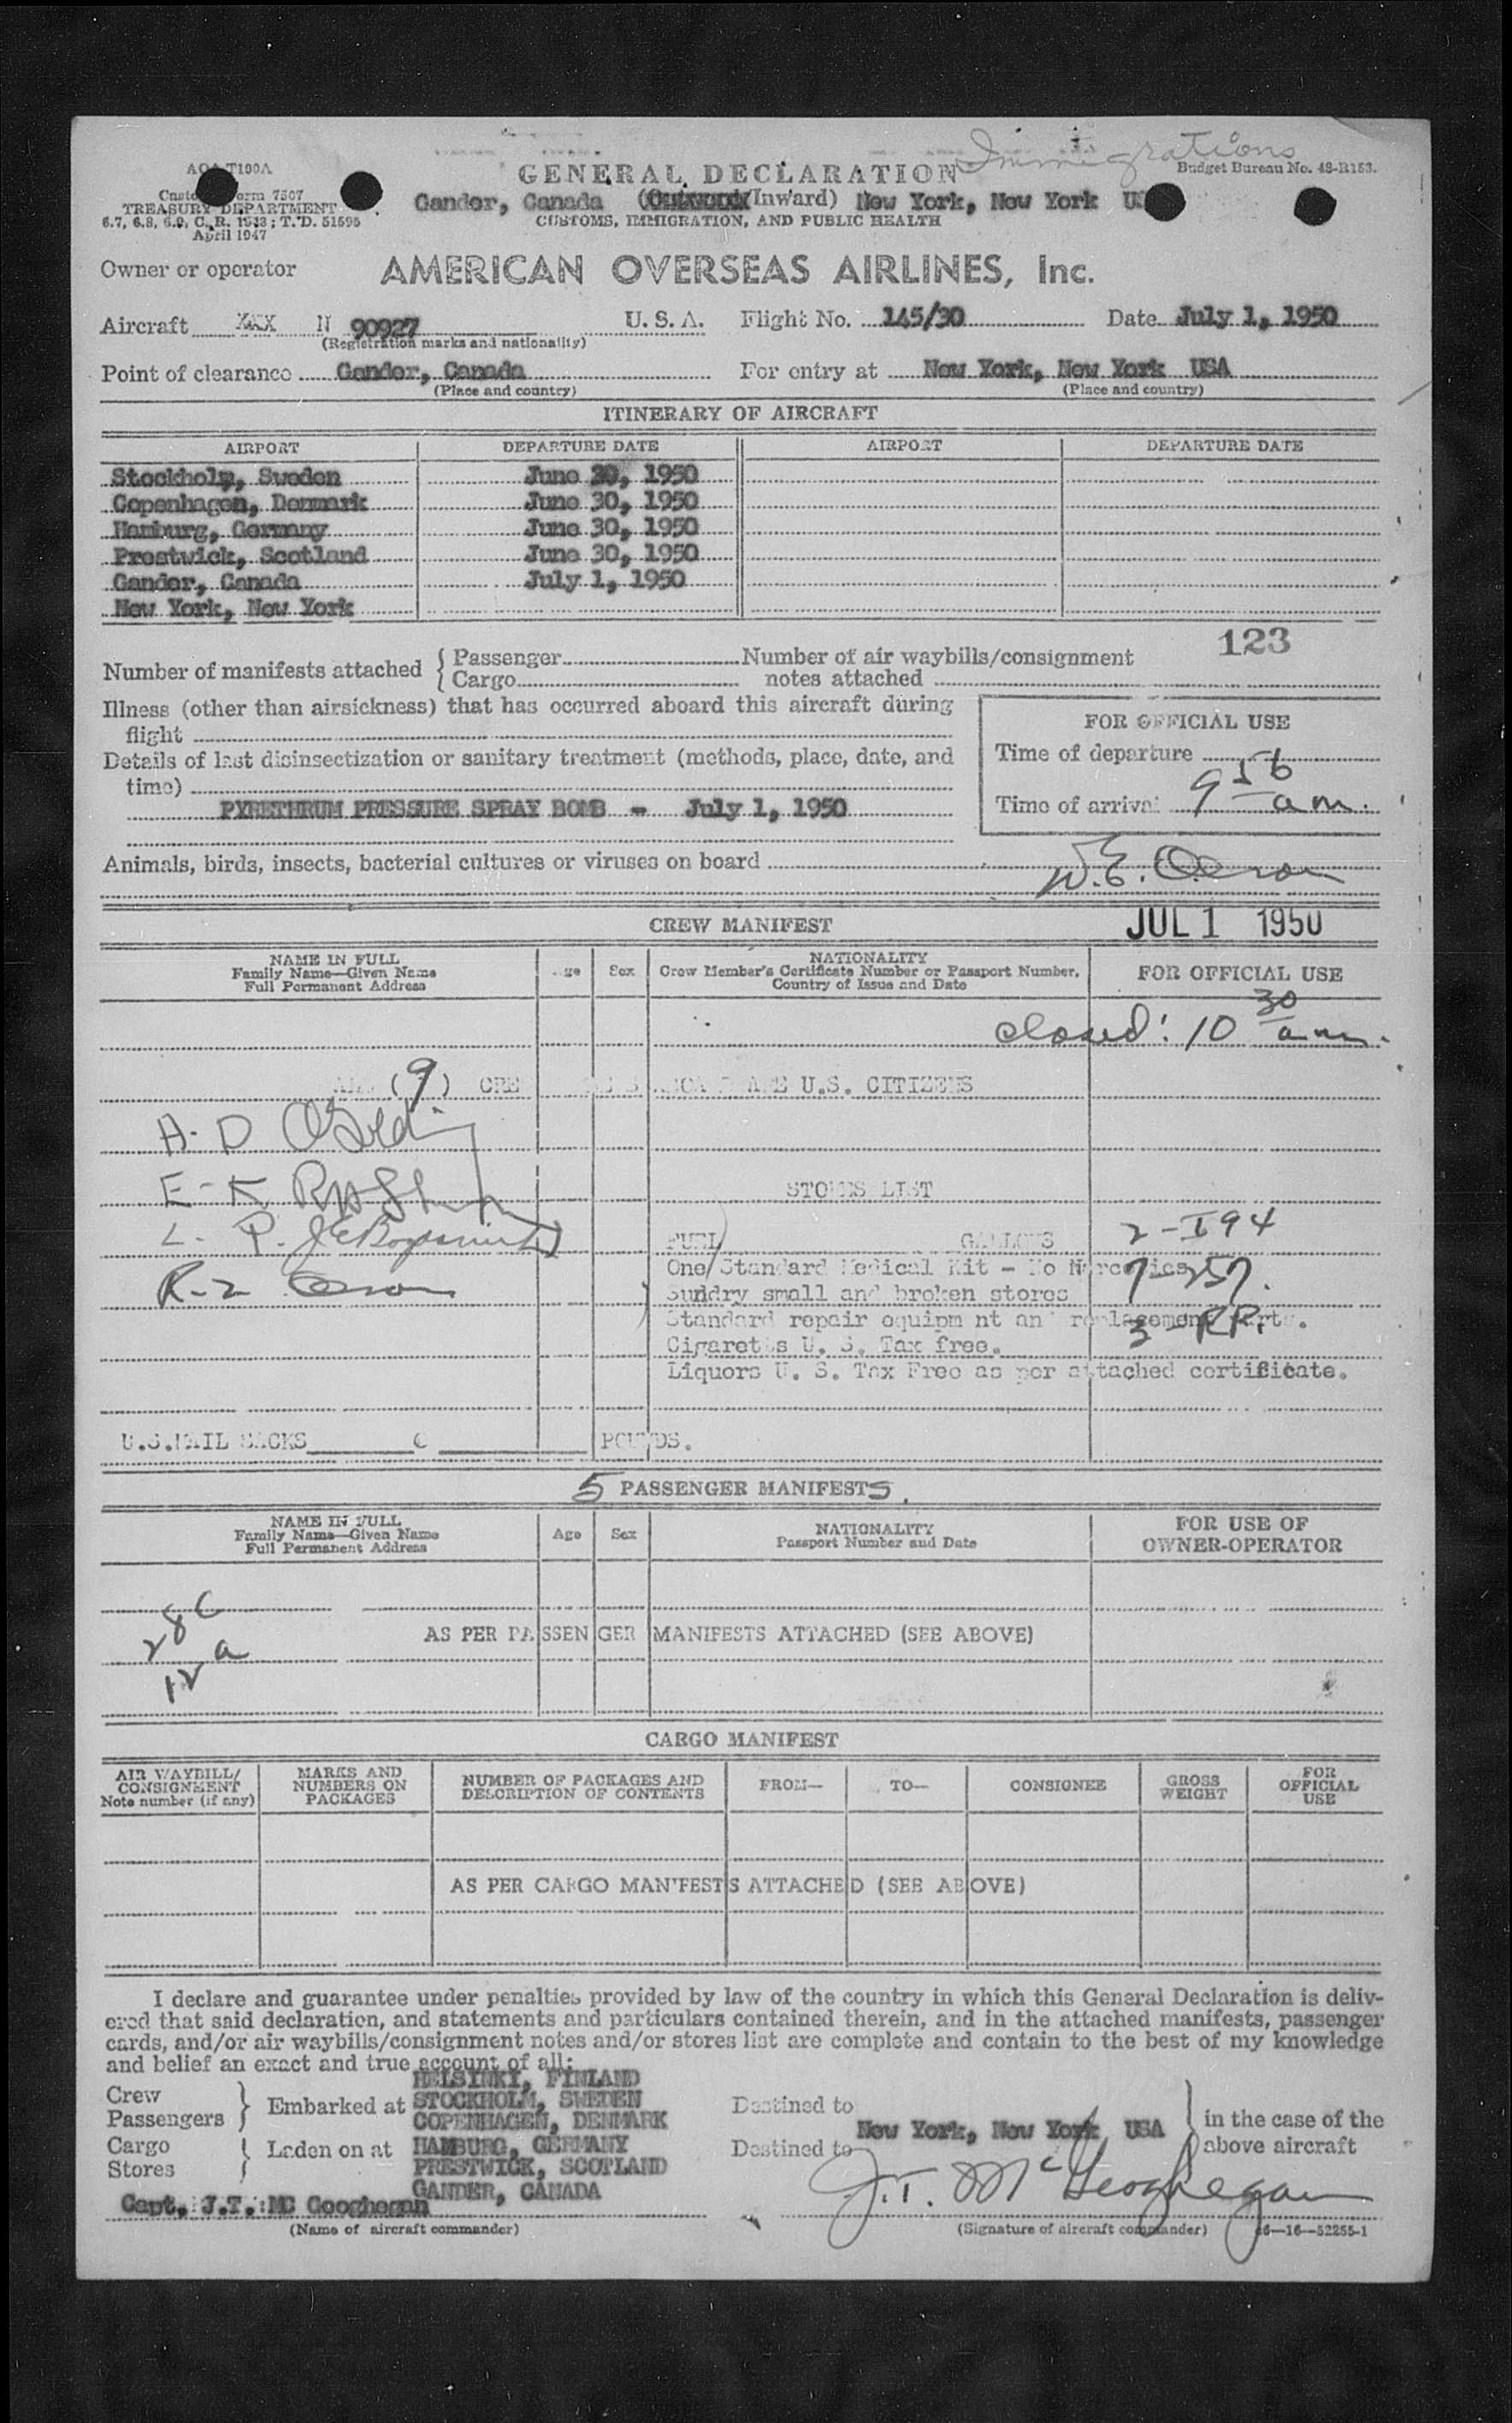 Immigrations
AOA T100A
GENERAL DECLARATION
Budget Bureau No. 48-R153.
Customs Form 7507
TREASURY DEPARTMENT
6.7, 6.8, 6.9, C. R. 1943; T. D. 51595
April 1947
Gander, Canada (Inward) New York, New York
CUSTOMS, IMMIGRATION, AND PUBLIC HEALTH
Owner or operator AMERICAN OVERSEAS AIRLINES, Inc.
Aircraft XXX N 90927 U. S. A. Flight No. 145/30 Date July 1, 1950
(Registration marks and nationality)
Point of clearance Gander, Canada For entry at New York, New York USA
(Place and country) (Place and country)
ITINERARY OF AIRCRAFT
AIRPORT DEPARTURE DATE AIRPORT DEPARTURE DATE
Stockholm, Sweden June 30, 1950
Copenhagen, Denmark June 30, 1950
Hamburg, Germany June 30, 1950
Prestwick, Scotland June 30, 1950
Gander, Canada July 1, 1950
New York, New York
123
Number of manifests attached { Passenger Number of air waybills/consignment
Cargo notes attached
Illness (other than airsickness) that has occurred aboard this aircraft during
flight
FOR OFFICIAL USE
Details of last disinsectization or sanitary treatment (methods, place, date, and
time)
Time of departure
PYRETHRUM PRESSURE SPRAY BOMB - July 1, 1950
Time of arrival 9 56 am.
Animals, birds, insects, bacterial cultures or viruses on board
W. E.
CREW MANIFEST
JUL 1 1950
NAME IN FULL
Family Name—Given Name
Full Permanent Address
Age Sex
NATIONALITY
Crew Member's Certificate Number or Passport Number,
Country of Issue and Date
FOR OFFICIAL USE
closed: 10 30 am.
(9) U.S. CITIZENS
A. D.
E. K.
STORES LIST
L. P.
FUEL GALLONS
2-I 94
One Standard Medical Kit - No Narcotics
7-257.
R. L.
Sundry small and broken stores
Standard repair equipment and replacement parts.
3-RP.
Cigarettes U. S. Tax free.
Liquors U. S. Tax Free as per attached certificate.
U.S.MAIL SACKS POUNDS.
5 PASSENGER MANIFESTS.
NAME IN FULL
Family Name—Given Name
Full Permanent Address
Age Sex
NATIONALITY
Passport Number and Date
FOR USE OF
OWNER-OPERATOR
28 C
AS PER PASSENGER MANIFESTS ATTACHED (SEE ABOVE)
12 a
CARGO MANIFEST
AIR WAYBILL/
CONSIGNMENT
Note number (if any)
MARKS AND
NUMBERS ON
PACKAGES
NUMBER OF PACKAGES AND
DESCRIPTION OF CONTENTS
FROM—
TO—
CONSIGNEE
GROSS
WEIGHT
FOR
OFFICIAL
USE
AS PER CARGO MANIFESTS ATTACHED (SEE ABOVE)
I declare and guarantee under penalties provided by law of the country in which this General Declaration is deliv-
ered that said declaration, and statements and particulars contained therein, and in the attached manifests, passenger
cards, and/or air waybills/consignment notes and/or stores list are complete and contain to the best of my knowledge
and belief an exact and true account of all:
HELSINKI, FINLAND
Crew
Passengers } Embarked at STOCKHOLM, SWEDEN
COPENHAGEN, DENMARK
Destined to
New York, New York USA
in the case of the
above aircraft
Cargo
Stores } Laden on at HAMBURG, GERMANY
PRESTWICK, SCOTLAND
GANDER, CANADA
Destined to
Capt. J.T. MC Geoghegan
J. T. McGeoghegan
(Name of aircraft commander) (Signature of aircraft commander) 16—52255-1